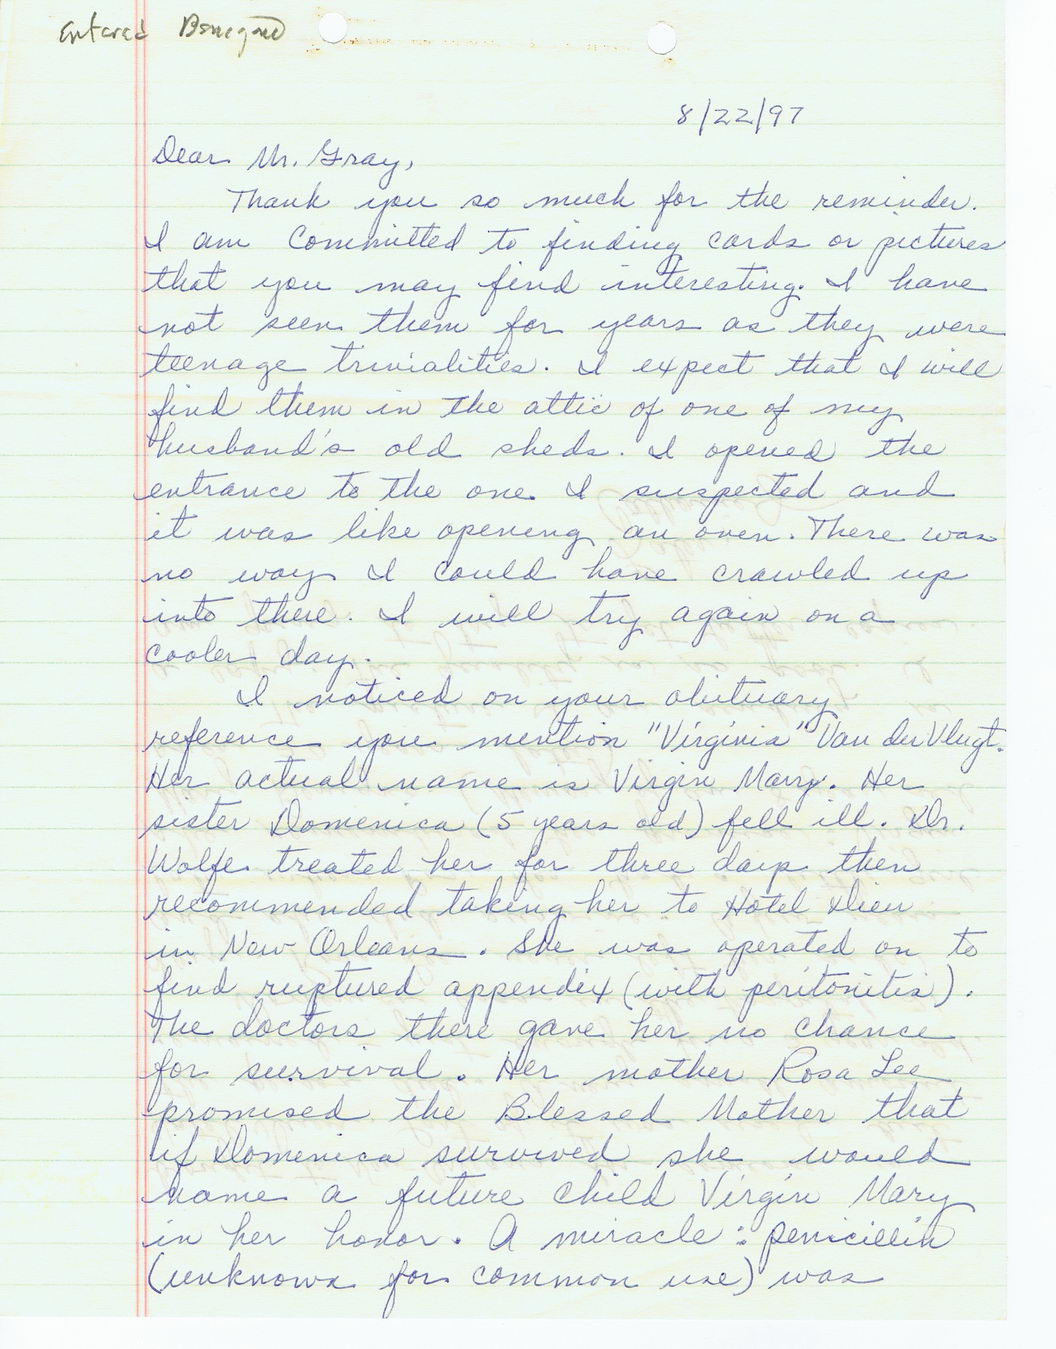 Entered
8/22/97
Dear Mr. Gray,
Thank you so much for the reminder.
I am committed to finding cards or pictures
that you may find interesting. I have
not seen them for years as they were
teenage trivialities. I expect that I will
find them in the attic of one of my
husband's old sheds. I opened the
entrance to the one I suspected and
it was like opening an oven. There was
no way I could have crawled up
into there. I will try again on a
cooler day.
I noticed on your obituary
reference you mention "Virginia" Van der Vlugt.
Her actual name is Virgin Mary. Her
sister Domenica (5 years old) fell ill. Dr.
Wolfe treated her for three days then
recommended taking her to Hotel Dieu
in New Orleans. She was operated on to
find ruptured appendix (with peritonitis).
The doctors there gave her no chance
for survival. Her mother Rosa Lee
promised the Blessed Mother that
if Domenica survived she would
name a future child Virgin Mary
in her honor. A miracle: penicillin
(unknown for common use) was